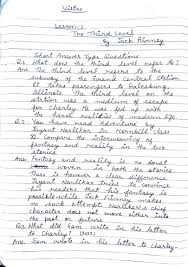 Vistas
Lesson-1
The Third Level
by Jack Finney
Short Answer Type Questions
Q.1 What does the third level refer to?
Ans. The third level refers to the
subway in the Grand central station
It takes passengers to Galesburg,
Illinois. The third level in the
station was a medium of escape
for charley. He was fed up with
the harsh realities of modern life
Q.2 You have read Adventure by
Jayant Narlikar in Hornbill class
XI. Compare the interweaving of
fantasy and reality in the two
stories.
Ans. Fantasy and reality is no doubt
woven in both the stories
There is however a clear difference
Jayant Narlikar tries to convince
his readers that his fantasy is
possible while Jack Finney makes
no such attempt. Narlikar's
character does not move either into
the past or future
Q.3 What did Sam write in his letter
to Charley?
Ans. Sam wrote in his letter to charley-